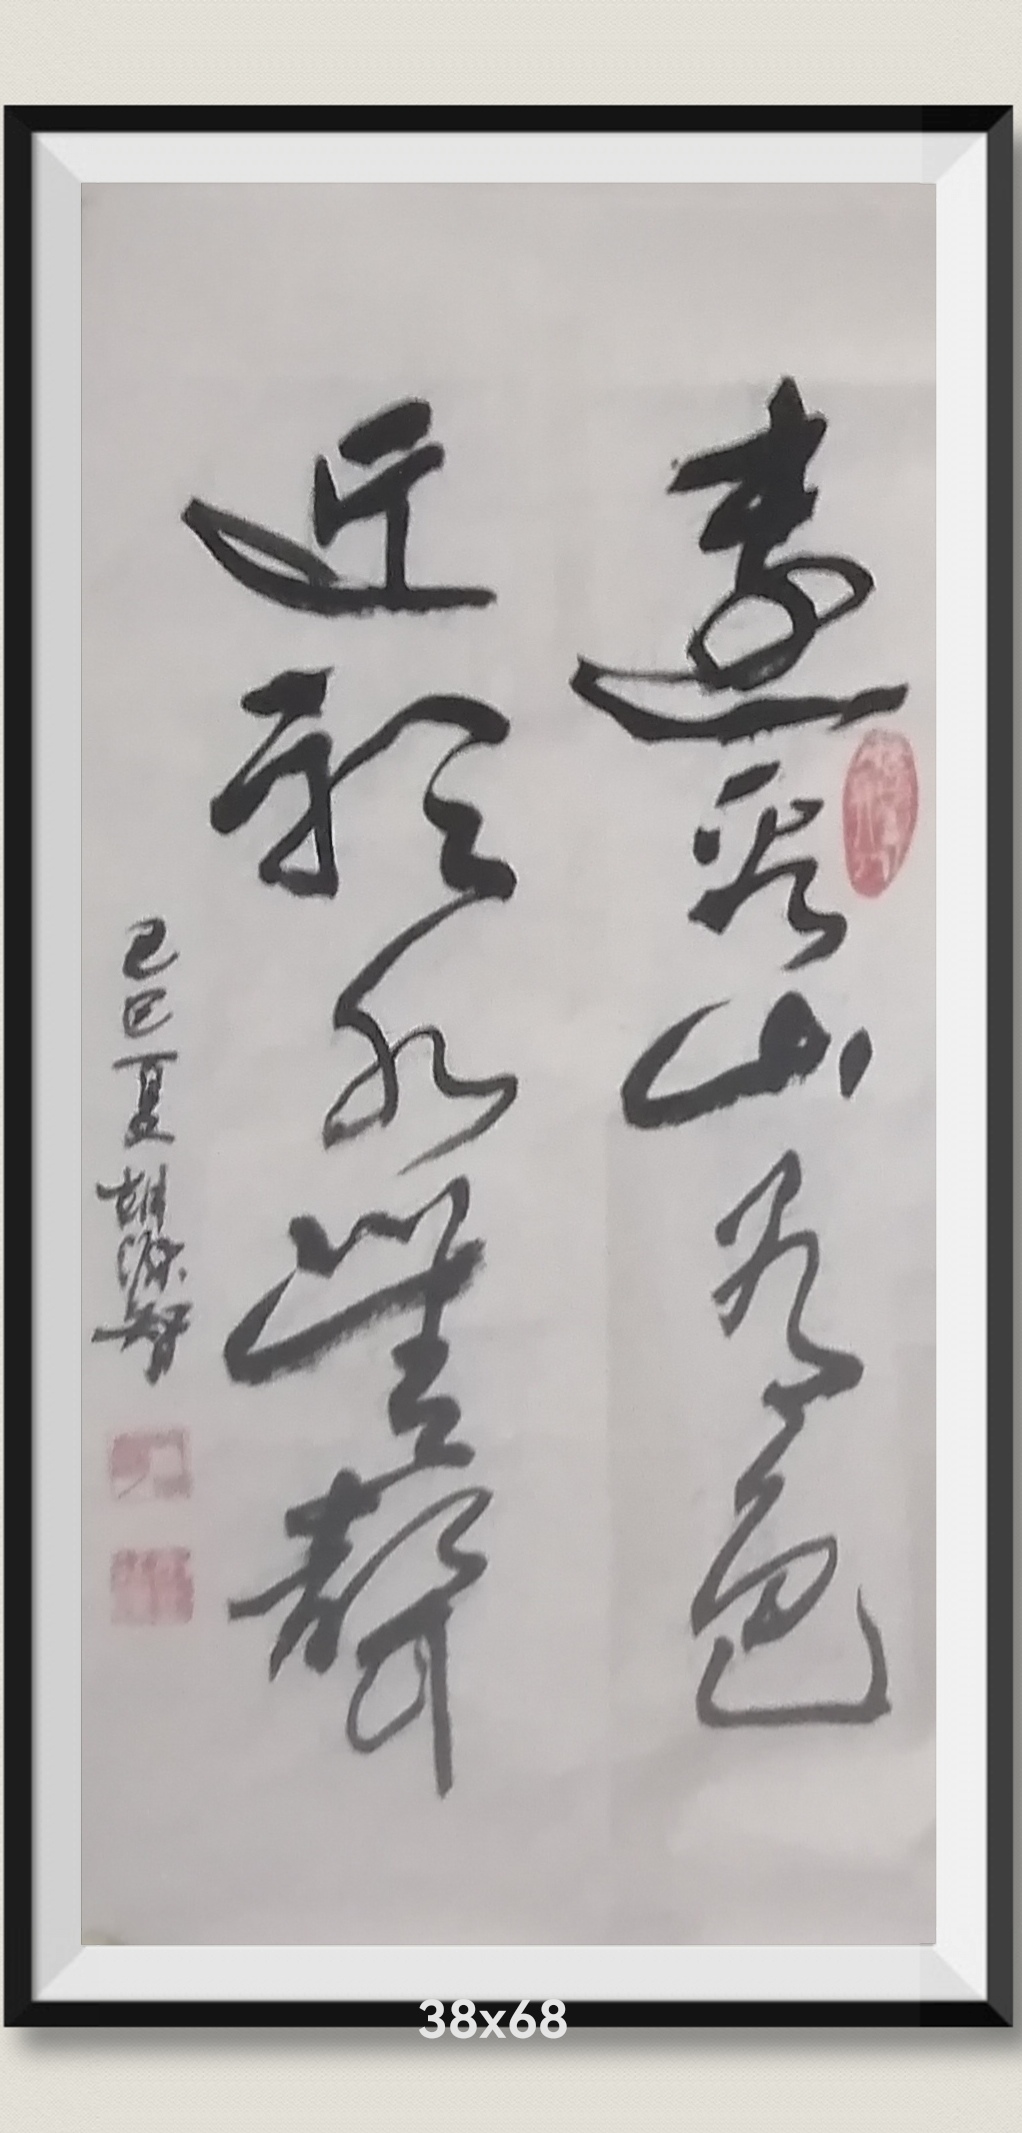 遠看山有色
近聽水無聲
己巳夏胡源智
38x68